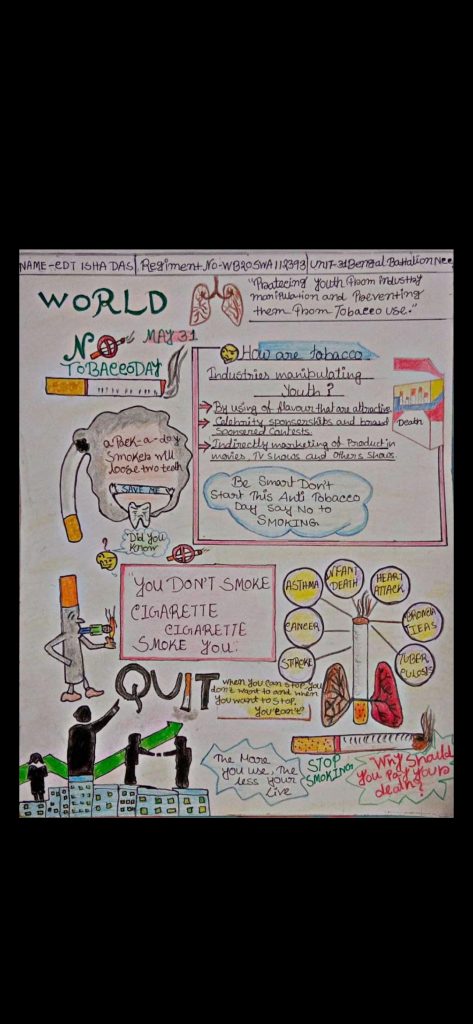 NAME-CDT ISHA DAS
Regiment No-WB20SWA112393
Unit-31Bengal Battalion Ncc
"Protecing youth from industry
manipulation and Preventing
them from Tobacco use."
WORLD
MAY 31
NO
TOBACCO DAY
How are tobacco
Industries manipulating
Youth?
→ By using of flavour that are attractive
→ Celebrity sponserships and brand
Sponsered Contests.
→ Indirectly marketing of Product in
movies, TV shows and others shows.
Death
a Pack-a-day
Smokers will
loose two teeth
SAVE ME
Did you
know
Be Smart Don't
Start This Anti Tobacco
Day say No to
SMOKING
"YOU DON'T SMOKE
CIGARETTE
CIGARETTE
SMOKE YOU.
ASTHMA
INFANT
DEATH
HEART
ATTACK
CANCER
STROKE
TUBER
CULOSIS
QUIT
when you can stop you
don't want to and when
you want to stop,
You can't?
The More
you use, The
less your
Live
STOP
SMOKING
Why Should
you Pay your
death?